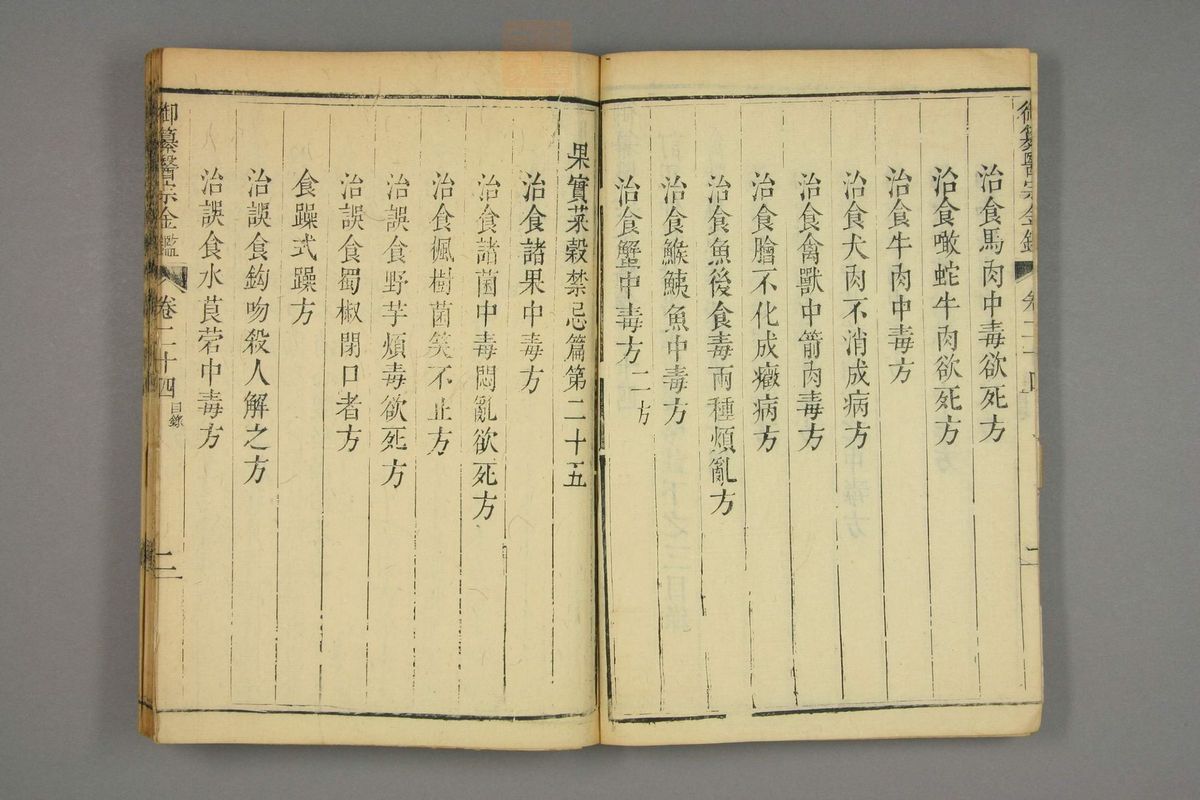 治食馬肉中毒欲死方
治食噉蛇牛肉欲死方
治食牛肉中毒方
治食犬肉不消成病方
治食禽獸中箭肉毒方
治食膾不化成癥病方
治食魚後食毒兩種煩亂方
治食鯸鮧魚中毒方
治食蟹中毒方二方
果實菜穀禁忌篇第二十五
治食諸果中毒方
治食諸菌中毒悶亂欲死方
治食楓樹菌笑不止方
治誤食野芋煩毒欲死方
治誤食蜀椒閉口者方
食躁式躁方
治誤食鈎吻殺人解之方
治誤食水莨菪中毒方
御纂醫宗金鑑 卷二十四 目錄 二